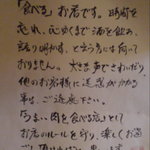 「食べる」お店です。時間を
忘れ、心ゆくまで酒を飲み、
語り明かす、とゆうには向いて
おりません。大きな声でさわいだり、
他のお客様に迷惑がかかる
事は、ご遠慮下さい。
「うまい、肉を食べる店」として
お店のルールを守り、楽しくお過